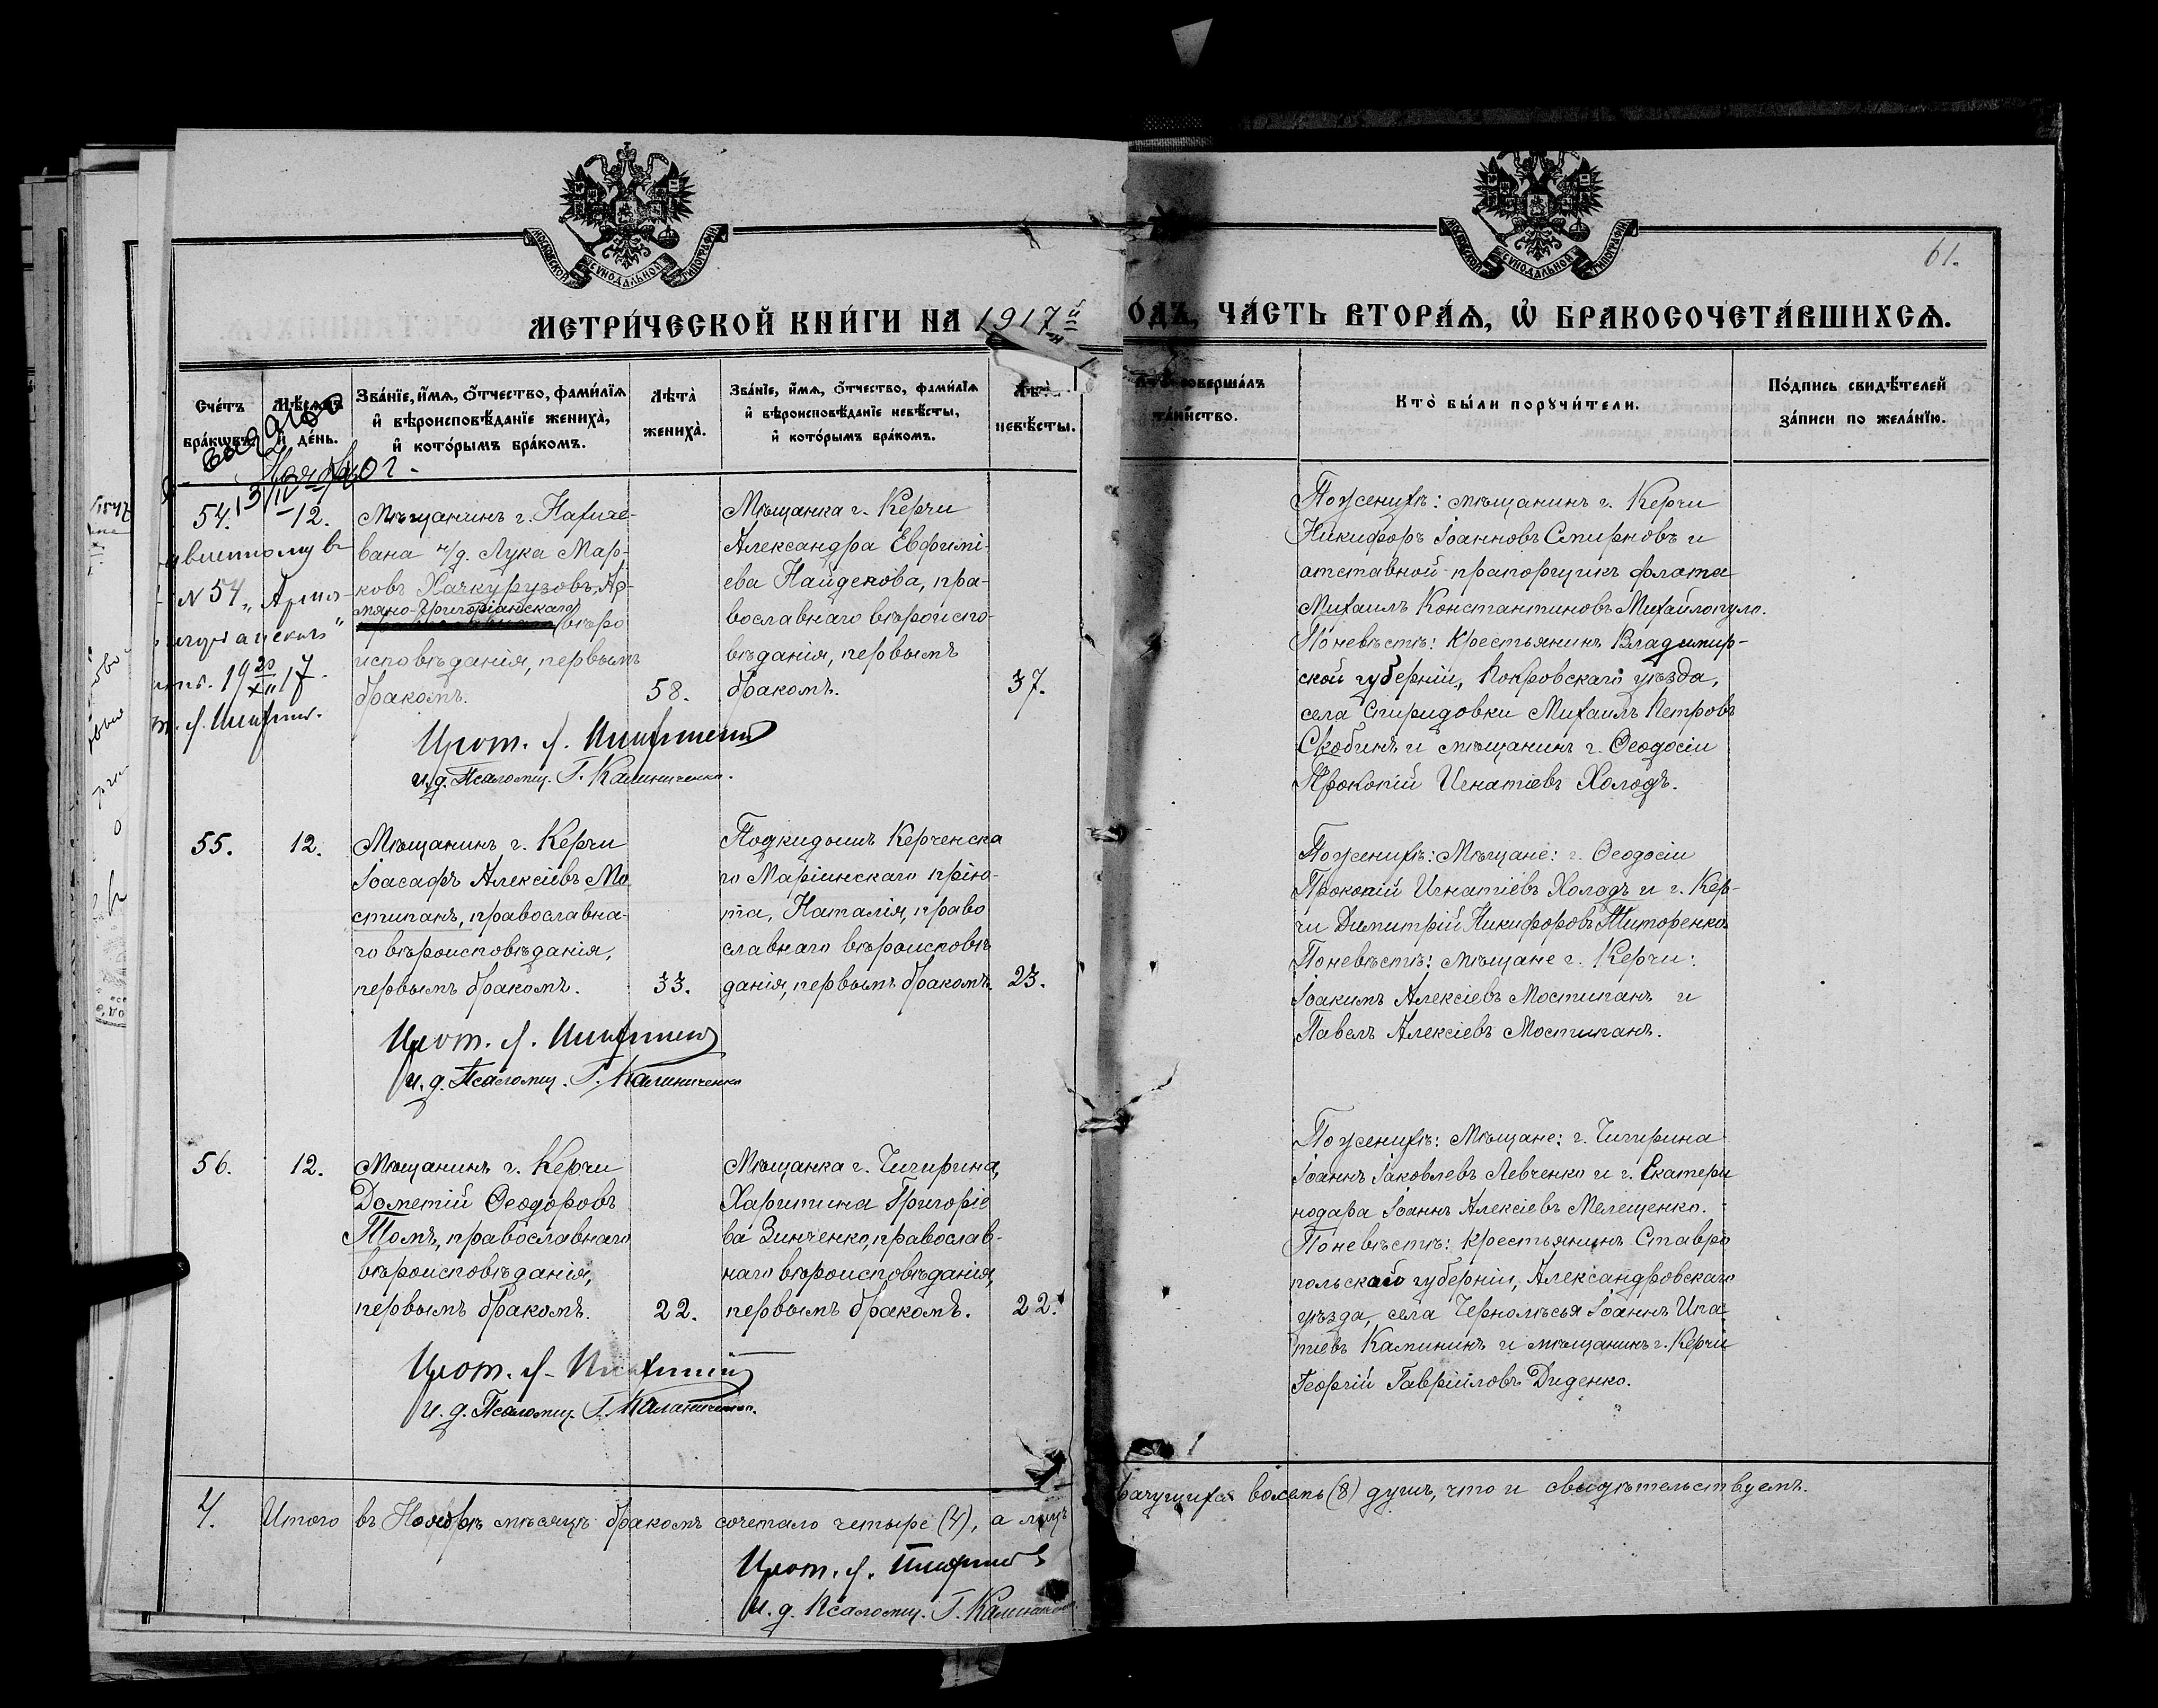 МОСКОВСКОЙ СѴНОДАЛЬНОЙ ТИПОГРАФІИ
МОСКОВСКОЙ СѴНОДАЛЬНОЙ ТИПОГРАФІИ
61.
МЕТРИ́ЧЕСКОЙ КНИ́ГИ НА 1917й
ОДЪ, ЧА́СТЬ ВТОРА́Я, Ѽ БРАКОСОЧЕТА́ВШИХСЯ.
Сче́тъ бра́кѡвъ.
Мѣ́сяцъ и҆ де́нь.
Зва́нїе, и҆́мя, ѻ҆́тчество, фами́лїя и҆ вѣроисповѣ́данїе жениха̀, и҆ кото́рымъ бра́комъ.
Лѣта̀ жениха̀.
Зва́нїе, и҆́мя, ѻ҆́тчество, фами́лїя и҆ вѣроисповѣ́данїе невѣ́сты, и҆ кото́рымъ бра́комъ.
Лѣта̀ невѣ́сты.
соверша́лъ та́инство.
Кто̀ бы́ли порꙋчи́тели.
По́дпись свидѣ́телей за́писи по жела́нїю.
Ноябрь
54.
12.
№ 54 „
Мѣщанинъ г. Нахиче-
вана н/д. Лука Мар-
ковъ Хачкурузовъ, Ар-
мяно-Григоріанскаго
вѣро
исповѣданія, первымъ
бракомъ.
58.
Мѣщанка г. Керчи
Александра Евфимі-
ева Найденова, пра-
вославнаго вѣроиспо-
вѣданія, первымъ
бракомъ.
37.
По женихѣ: мѣщанинъ г. Керчи
Никифоръ Іоанновъ Смирновъ и
отставной прапорщикъ флота
Михаилъ Константиновъ Михайлопуло.
По невѣстѣ: крестьянинъ Владимир-
ской губерніи, Покровскаго уѣзда,
села Спиридовки Михаилъ Петровъ
Скобинъ и мѣщанинъ г. Ѳеодосіи
Прокопій Игнатіевъ Холодъ.
Прот. А.
и. д. Псаломщ. Г. Калиниченко.
55.
12.
Мѣщанинъ г. Керчи
Іоасафъ Алексіевъ Мо
стипанъ, православна-
го вѣроисповѣданія,
первымъ бракомъ.
33.
Подкидышъ Керченска
го Маріинскаго прію-
та, Наталія, право
славнаго вѣроисповѣ
данія, первымъ бракомъ.
23.
По женихѣ: Мѣщане: г. Ѳеодосіи
Прокопій Игнатіевъ Холодъ и г. Кер-
чи Димитрій Никифоровъ Титоренко.
По невѣстѣ: мѣщане г. Керчи:
Іоакимъ Алексіевъ Мостипанъ и
Павелъ Алексіевъ Мостипанъ.
Прот. А.
и. д. Псаломщ. Г. Калиниченко
56.
12.
Мѣщанинъ г. Керчи
Дометій Ѳеодоровъ
Томъ, православнаго
вѣроисповѣданія,
первымъ бракомъ.
22.
Мѣщанка г. Чигирина,
Харитина Григоріе
ва Зинченко, православ-
наго вѣроисповѣданія,
первымъ бракомъ.
22.
По женихѣ: Мѣщане: г. Чигирина
Іоаннъ Іаковлевъ Левченко и г. Екатери
нодара Іоаннъ Алексіевъ Мелещенко.
По невѣстѣ: крестьянинъ Ставро
польской губерніи, Александровскаго
уѣзда, села Чернолѣсья Іоаннъ Ипа
тіевъ Калининъ и мѣщанинъ г. Керчи
Георгій Гавріиловъ Диденко.
Прот. А.
и. д. Псаломщ. Г. Калиниченко.
4. Итого въ Ноябрѣ мѣсяцѣ бракомъ сочетало четыре (4), а лицъ
восемь (8) душъ, что и свидѣтельствуемъ.
Прот. А.
и. д. Псаломщ. Г. Калиниченко.